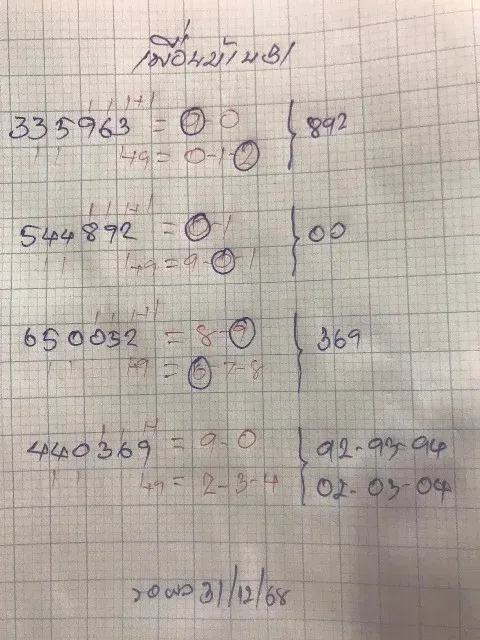 เพื่อนบ้าน31
335963 = 9-0 } 892
49 = 0-1-2
544892 = 0-1 } 00
49 = 9-0-1
650032 = 8-9 } 369
49 = 6-7-8
440369 = 9-0 } 92-93-94
49 = 2-3-4 02-03-04
31/12/68